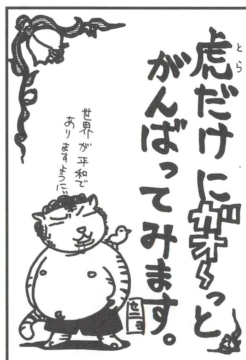 とら
虎だけにガオ〜っと
がんばってみます。
世界が平和で
ありますように…